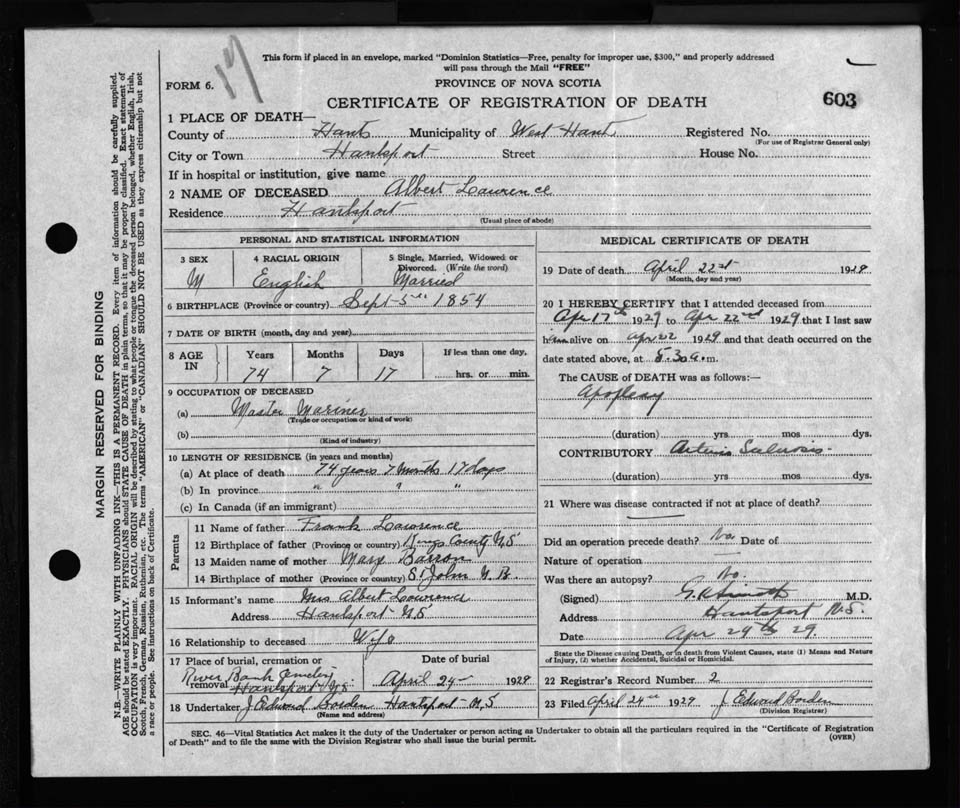 This form if placed in an envelope, marked "Dominion Statistics—Free, penalty for improper use, $300," and properly addressed
will pass through the Mail "FREE"
FORM 6.
17
PROVINCE OF NOVA SCOTIA
CERTIFICATE OF REGISTRATION OF DEATH
603
1 PLACE OF DEATH—
County of Hants Municipality of West Hant Registered No.
(For use of Registrar General only)
City or Town Hantsport Street House No.
If in hospital or institution, give name
2 NAME OF DECEASED Albert Lawrence
Residence Hantsport
(Usual place of abode)
PERSONAL AND STATISTICAL INFORMATION
3 SEX 4 RACIAL ORIGIN 5 Single, Married, Widowed or
Divorced. (Write the word)
M English Married
6 BIRTHPLACE (Province or country) Sept 5th 1854
7 DATE OF BIRTH (month, day and year)
8 AGE IN Years Months Days If less than one day,
74 7 17 hrs. or min.
9 OCCUPATION OF DECEASED
(a) Master Mariner
(Trade or occupation or kind of work)
(b)
(Kind of industry)
10 LENGTH OF RESIDENCE (in years and months)
(a) At place of death 74 years 7 Months 17 days
(b) In province " " "
(c) In Canada (if an immigrant)
Parents
11 Name of father Frank Lawrence
12 Birthplace of father (Province or country) Kings County N.S
13 Maiden name of mother Mary Barron
14 Birthplace of mother (Province or country) St John N.B.
15 Informant's name Mrs Albert Lawrence
Address Hantsport N.S
16 Relationship to deceased Wife
17 Place of burial, cremation or Date of burial
River Bank Cemetery
removal Hantsport N.S. April 24 1929
18 Undertaker J Edward Borden Hantsport N.S
(Name and address)
MEDICAL CERTIFICATE OF DEATH
19 Date of death April 22nd 1929
(Month, day and year)
20 I HEREBY CERTIFY that I attended deceased from
Apr 17th 1929 to Apr 22nd 1929 that I last saw
him alive on Apr 22 1929 and that death occurred on the
date stated above, at 8.30 a.m.
The CAUSE of DEATH was as follows:—
Apoplexy
(duration) yrs mos dys.
CONTRIBUTORY Arterio Sclerosis
(duration) yrs mos dys.
21 Where was disease contracted if not at place of death?
Did an operation precede death? No. Date of
Nature of operation
Was there an autopsy? No.
(Signed) M.D.
Address Hantsport N.S.
Date Apr 24th 29.
State the Disease causing Death, or in death from Violent Causes, state (1) Means and Nature
of Injury, (2) whether Accidental, Suicidal or Homicidal.
22 Registrar's Record Number 2
23 Filed April 24th 1929 J Edward Borden
(Division Registrar)
SEC. 46—Vital Statistics Act makes it the duty of the Undertaker or person acting as Undertaker to obtain all the particulars required in the "Certificate of Registration
of Death" and to file the same with the Division Registrar who shall issue the burial permit. (OVER)
MARGIN RESERVED FOR BINDING
N.B.—WRITE PLAINLY WITH UNFADING INK—THIS IS A PERMANENT RECORD. Every item of information should be carefully supplied.
AGE should be stated EXACTLY. PHYSICIANS should STATE CAUSE OF DEATH in plain terms, so that it may be properly classified. Exact statement of
OCCUPATION is very important. RACIAL ORIGIN will be described by stating to what people or tongue the deceased person belonged, whether English, Irish,
Scotch, French, German, Russian, Ruthenian, etc. The terms "AMERICAN" or "CANADIAN" SHOULD NOT BE USED as they express citizenship but not
a race or people. See instructions on back of Certificate.